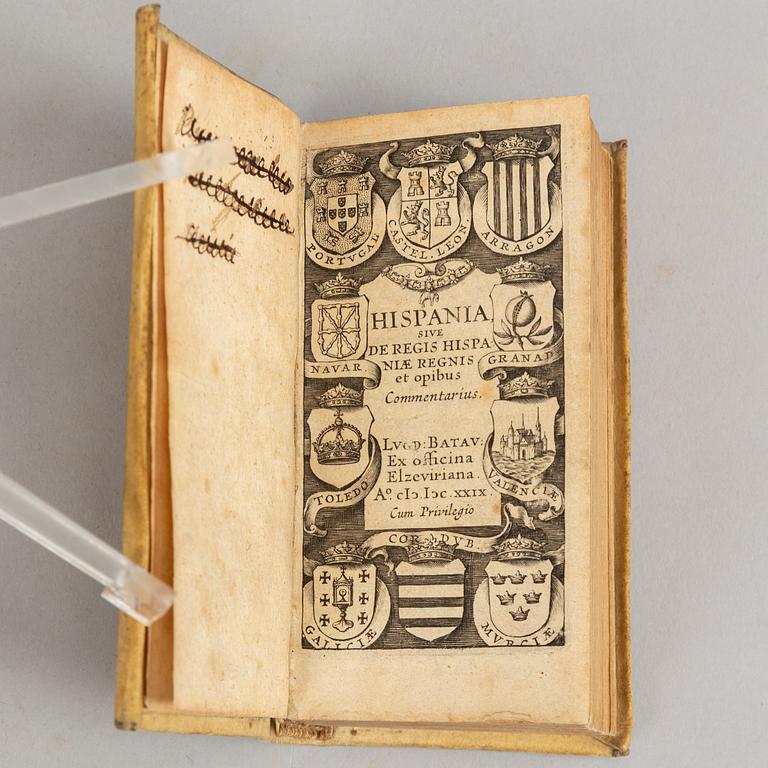 PORTVGAL
CASTEL. LEON
ARRAGON
HISPANIA,
SIVE
DE REGIS HISPA
NIÆ REGNIS
et opibus
Commentarius.
NAVAR
GRANAD
LVGD: BATAV:
Ex officina
Elzeviriana.
Aº. cIɔ.Iɔc.XXIX.
Cum Privilegio
TOLEDO
VALENCIÆ
CORDVB
GALICIÆ
MVRCIÆ